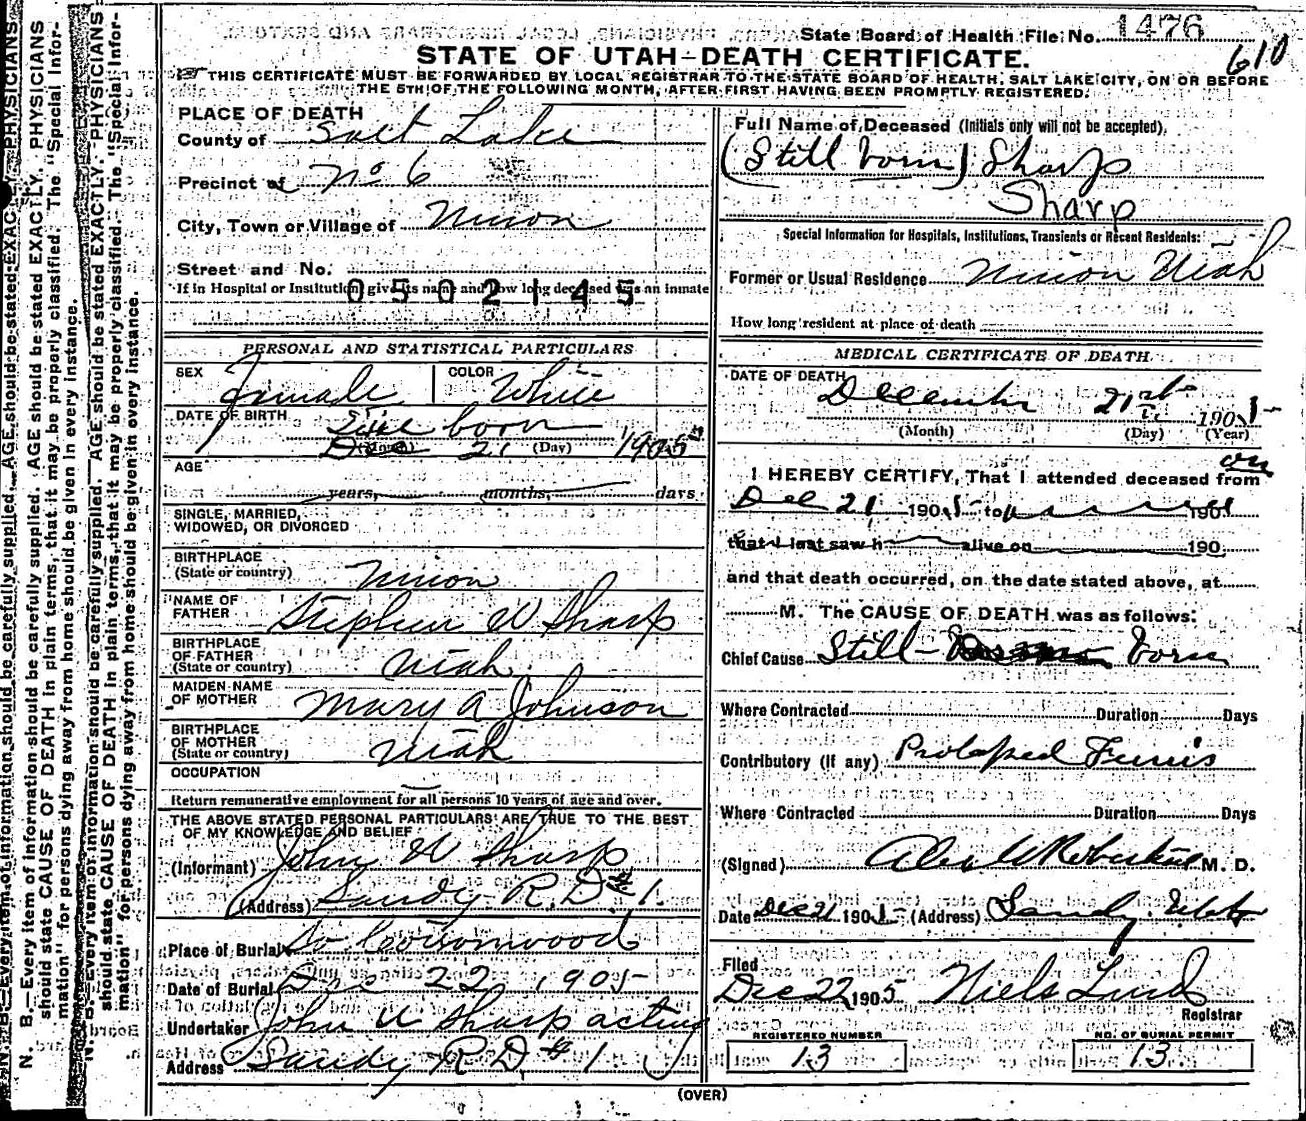 State Board of Health File No. 1476
610
STATE OF UTAH—DEATH CERTIFICATE.
THIS CERTIFICATE MUST BE FORWARDED BY LOCAL REGISTRAR TO THE STATE BOARD OF HEALTH, SALT LAKE CITY, ON OR BEFORE
THE 5TH OF THE FOLLOWING MONTH, AFTER FIRST HAVING BEEN PROMPTLY REGISTERED.
PLACE OF DEATH
County of Salt Lake
Precinct of No 6
City, Town or Village of Union
Street and No.
If in Hospital or Institution give its name and how long deceased was an inmate
0502145
PERSONAL AND STATISTICAL PARTICULARS
SEX Female COLOR White
DATE OF BIRTH Still born
Dec 21 1905
(Month) (Day)
AGE
years, months, days
SINGLE, MARRIED,
WIDOWED, OR DIVORCED
BIRTHPLACE
(State or country) Union
NAME OF
FATHER Stephen W Sharp
BIRTHPLACE
OF FATHER
(State or country) Utah
MAIDEN NAME
OF MOTHER Mary A Johnson
BIRTHPLACE
OF MOTHER
(State or country) Utah
OCCUPATION
Return remunerative employment for all persons 10 years of age and over.
THE ABOVE STATED PERSONAL PARTICULARS ARE TRUE TO THE BEST
OF MY KNOWLEDGE AND BELIEF
(Informant) John W Sharp
(Address) Sandy R.D.# 1.
Place of Burial So Cottonwood
Date of Burial Dec 22, 1905
Undertaker John W Sharp acting
Address Sandy R D # 1.
Full Name of Deceased (Initials only will not be accepted).
(Still born) Sharp
Sharp
Special Information for Hospitals, Institutions, Transients or Recent Residents:
Former or Usual Residence Union Utah
How long resident at place of death
MEDICAL CERTIFICATE OF DEATH
DATE OF DEATH
December 21st 1905
(Month) (Day) (Year)
I HEREBY CERTIFY, That I attended deceased from on
Dec 21 1905 to 190
that I last saw h alive on 190
and that death occurred, on the date stated above, at
M. The CAUSE OF DEATH was as follows:
Chief Cause Still- born
Where Contracted Duration Days
Contributory (If any) Prolapsed Funis
Where Contracted Duration Days
(Signed) M. D.
Date Dec 21 1905 (Address) Sandy, Utah
Filed
Dec 22 1905 Niels Lind
Registrar
REGISTERED NUMBER
13
NO. OF BURIAL PERMIT
13
(OVER)
N. B.—Every item of information should be carefully supplied. AGE should be stated EXACTLY. PHYSICIANS
should state CAUSE OF DEATH in plain terms, that it may be properly classified. The "Special Infor-
mation" for persons dying away from home should be given in every instance.
N. B.—Every item of information should be carefully supplied. AGE should be stated EXACTLY. PHYSICIANS
should state CAUSE OF DEATH in plain terms, that it may be properly classified. The "Special Infor-
mation" for persons dying away from home should be given in every instance.